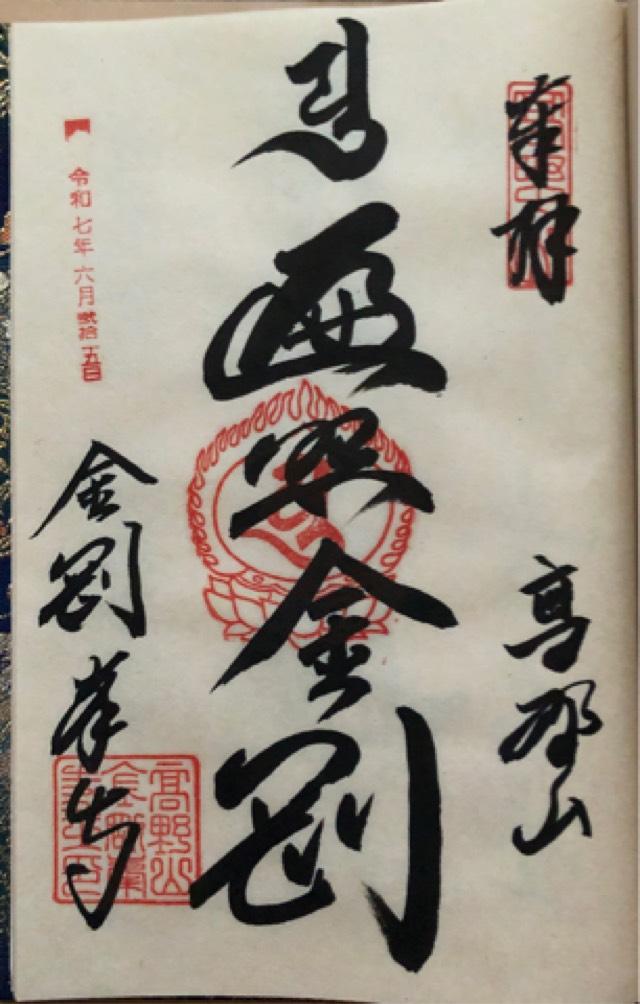 奉拝
高野山
遍照金剛
令和七年六月弐拾五日
金剛峯寺
高野山
金剛峯